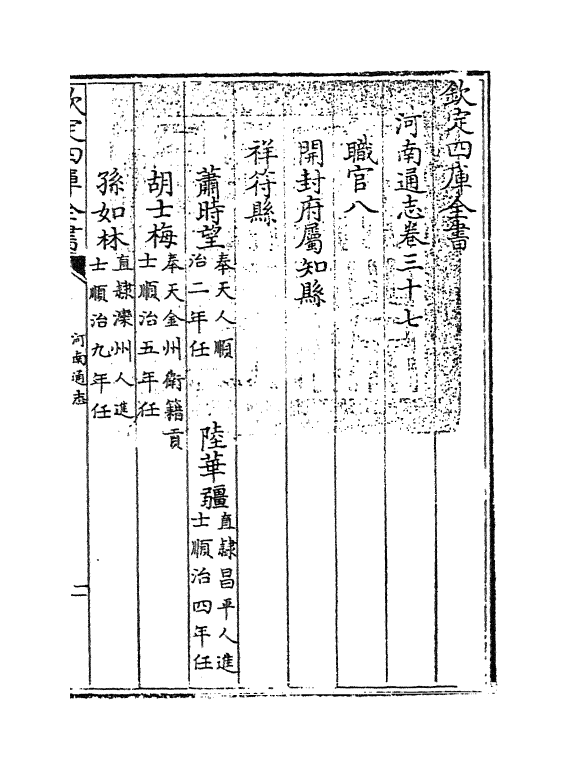 欽定四庫全書
河南通志卷三十七
職官八
開封府屬知縣
祥符縣
蕭時望 奉天人順
治二年任
陸華疆 直隸昌平人進
士順治四年任
胡士梅 奉天金州衛籍貢
士順治五年任
孫如林 直隸灤州人進
士順治九年任
欽定四庫全書
河南通志
二